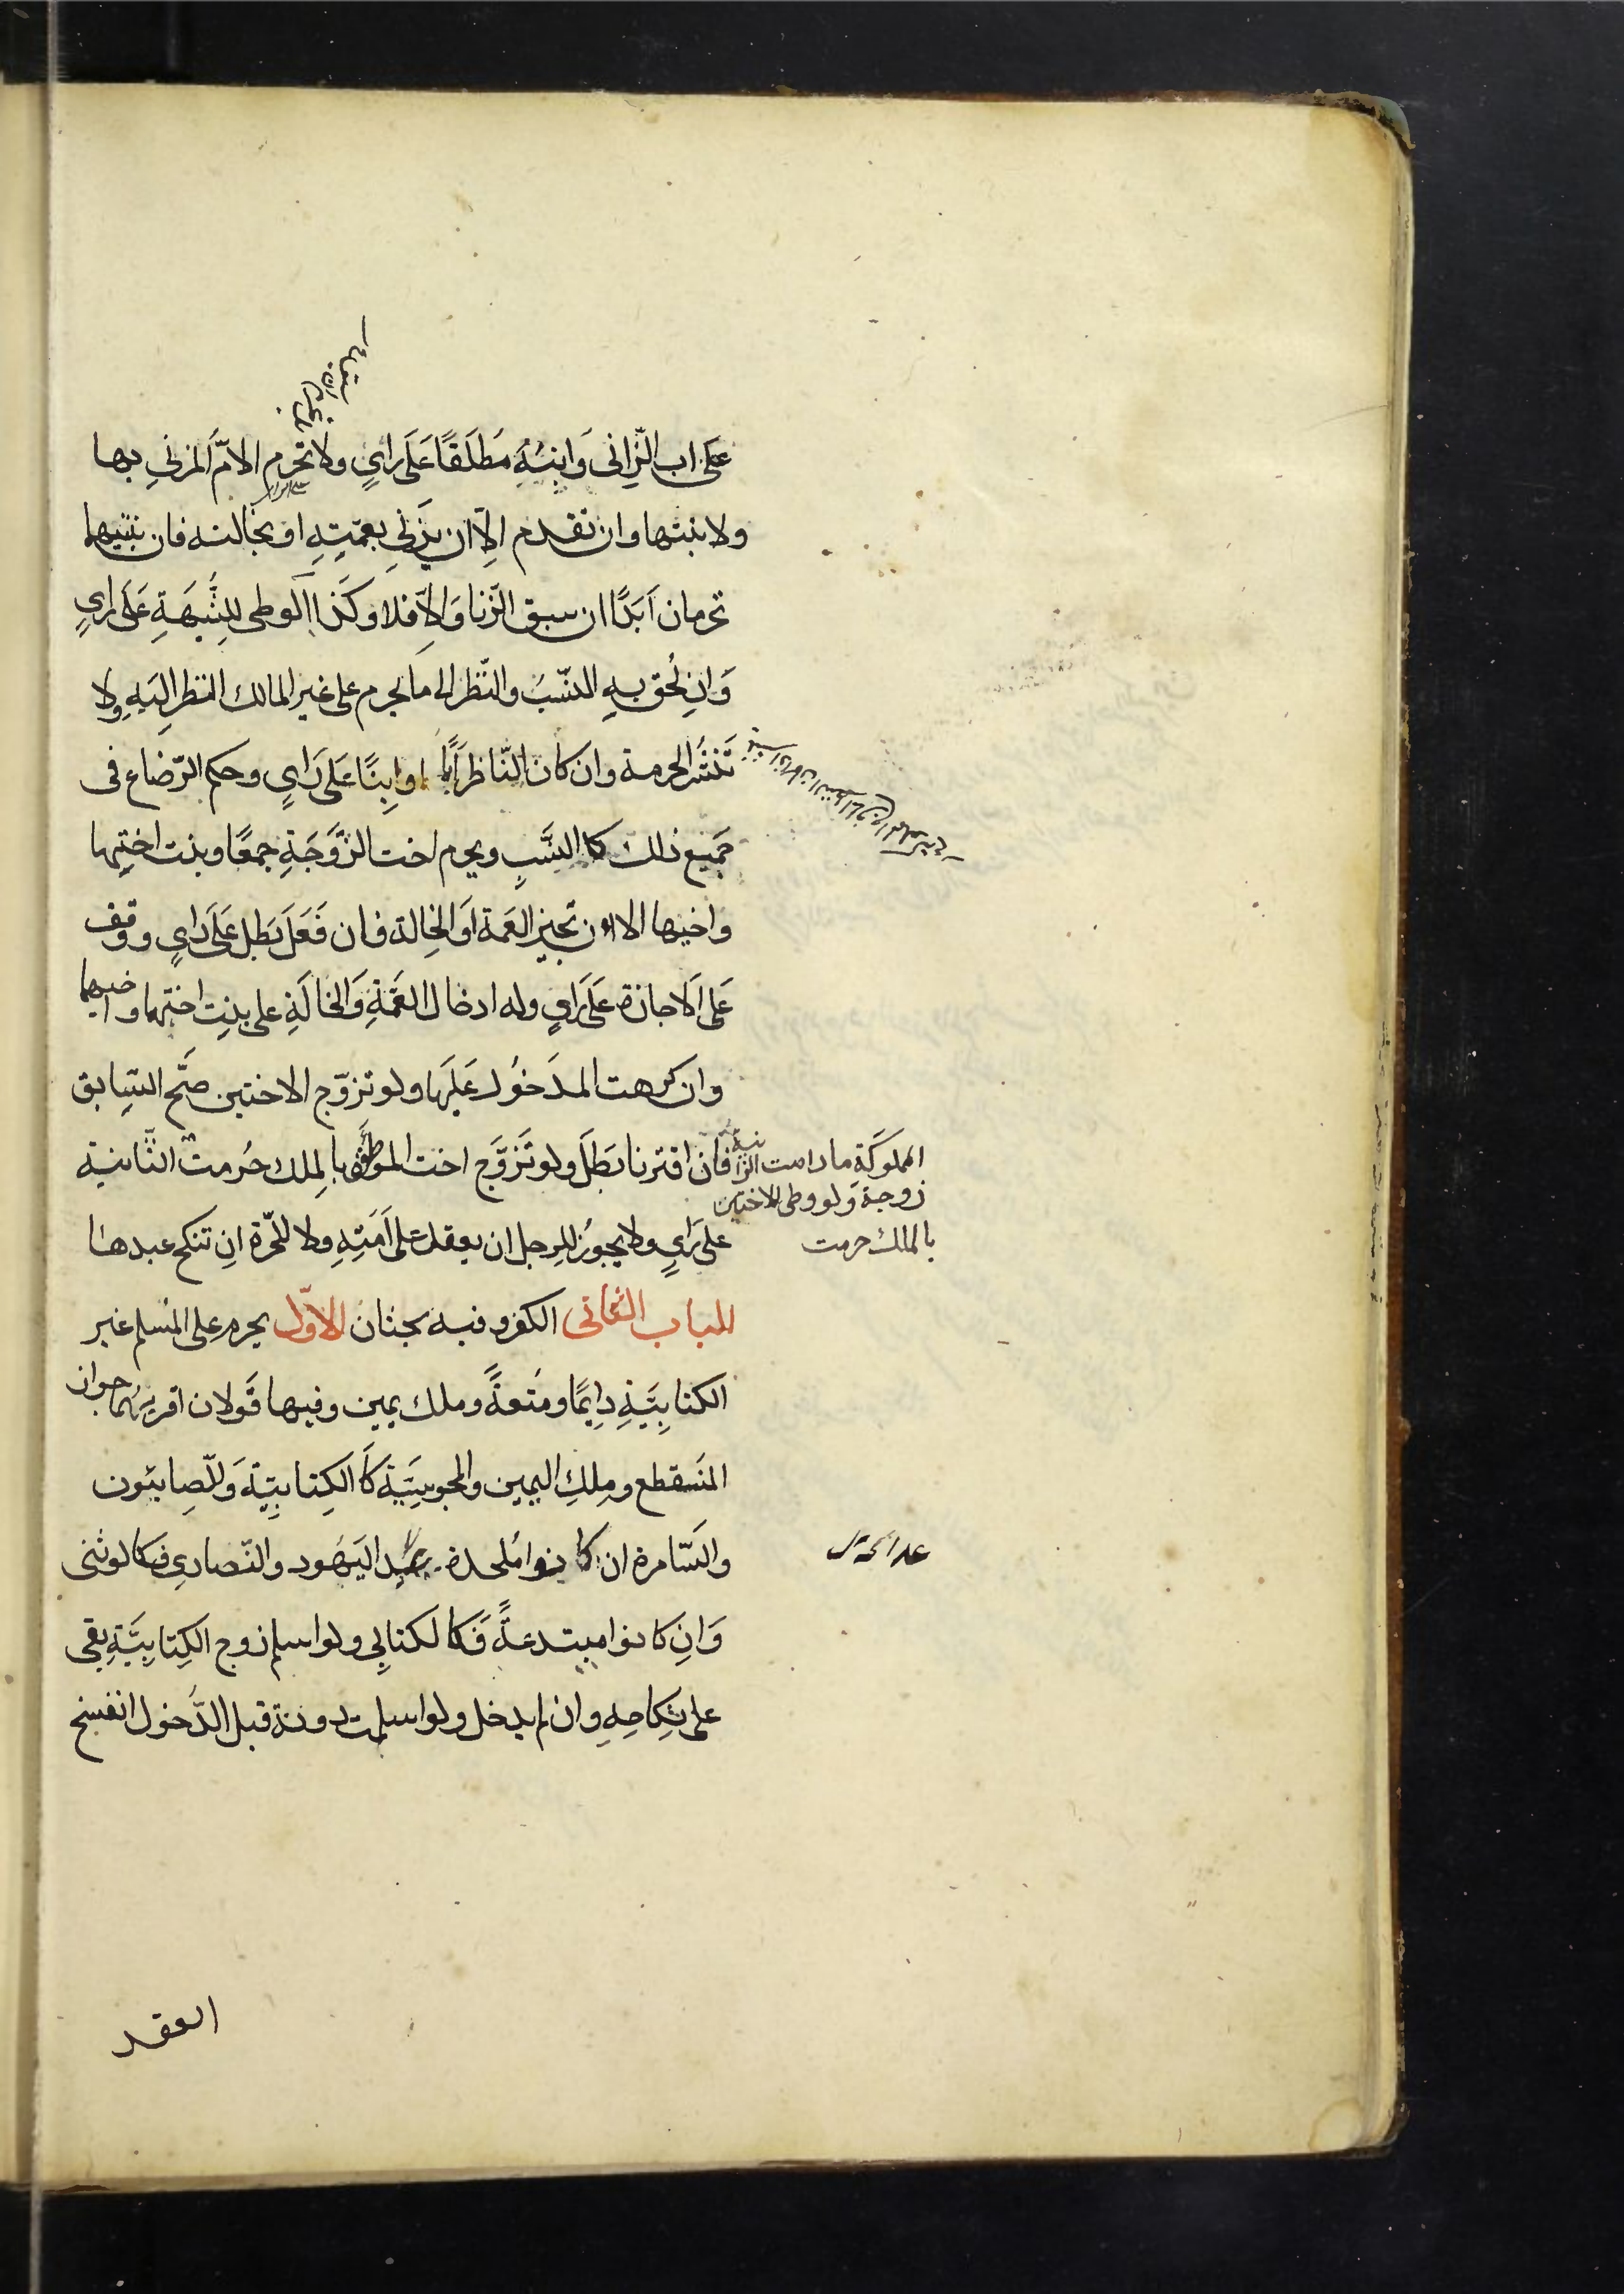 على اب الزانى وابنه مطلقًا على راىٍ ولا تحرم الامّ المزنى بها
ولا بنتها وان تقدم الّا ان يزنى بعمّتِهِ او بخالته فان بنتيهما
تحرمان ابدًا ان سبق الزنا والّا فلا وكذا الوطى للشّبهةِ على راىٍ
وان لحق به النّسبُ والنّظر الى ما يحرم على غير المالك النظر اليهِ ولا
تنشر الحرمة وان كان النّاظر ابًا او ابنًا على راىٍ وحكم الرّضاع فى
جميع ذلك كا النسَبِ ويحرم اخت الزّوجةِ جمعًا وبنت اختها
واخيها الا ان تجيز العمة او الخالة فان فعل بطل على راى ووقف
على الاجازة على راىٍ وله ادخال العمّةِ والخالةِ على بنت اختهما واخيهما
وان كرهت المدخول عليها ولو تزوّج الاختين صحّ السّابق
فان اقترنا بطل ولو تزوّج اخت الموطؤة بالملك حُرمت الثّانية
المملوكةِ ما دامت الثانية
زوجة ولو وطى الاختين
بالملك حرمت
على راىٍ ولا يجوزُ للرجل ان يعقد على امتِهِ ولا للحرّة ان تنكح عبدها
الباب الثانى الكفر وفيه بحثان الاوّل يحرم على المُسلم غير
الكتابيّةِ دايمًا ومتعةً وملك يمين وفيها قولان اقربهُما جواز
المنقطع وملكِ اليمين والمجوسيّة كا الكتابيّة والصابئون
والسّامرة ان كانوا مُلحدة عند اليهود والنّصارى فكالوثنى
وان كانوا مبتدعةً فكالكتابى ولو اسلم زوج الكتابيّةِ بقى
على نكاحهِ وان لم يدخل ولو اسلمت دونة قبل الدّخول انفسخ
العقد